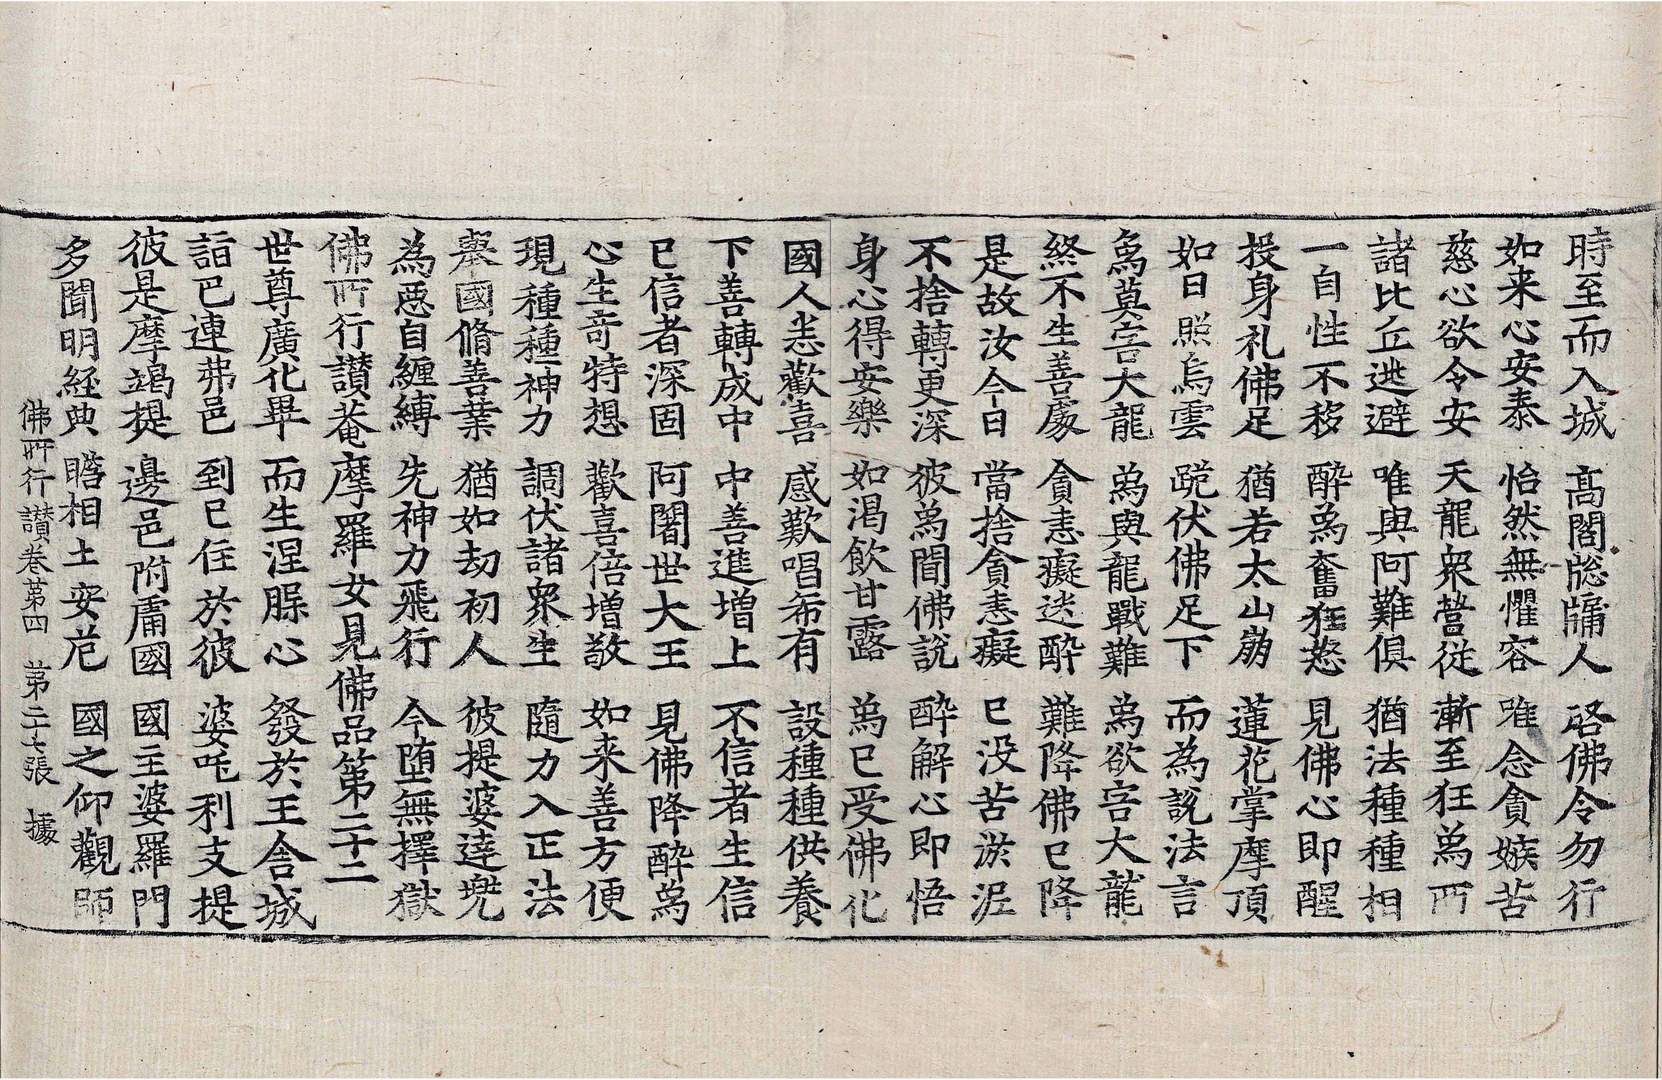 時至而入城 高閣窓牖人 啓佛令勿行
如来心安泰 怡然無懼容 唯念貪嫉苦
慈心欲令安 天龍衆營從 漸至狂象所
諸比丘逃避 唯與阿難俱 猶法種種相
一自性不移 醉象奮狂怒 見佛心即醒
投身礼佛足 猶若太山崩 蓮花掌摩頂
如日照烏雲 跪伏佛足下 而為說法言
象莫害大龍 象與龍戰難 象欲害大龍
終不生善處 貪恚癡迷醉 難降佛已降
是故汝今日 當捨貪恚癡 已没苦淤泥
不捨轉更深 彼象聞佛說 醉解心即悟
身心得安樂 如渴飲甘露 象已受佛化
國人悉歡喜 感歎唱希有 設種種供養
下善轉成中 中善進增上 不信者生信
已信者深固 阿闍世大王 見佛降醉象
心生奇特想 歡喜倍增敬 如来善方便
現種種神力 調伏諸衆生 隨力入正法
舉國脩善業 猶如劫初人 彼提婆達兜
為惡自纏縛 先神力飛行 今墮無擇獄
佛所行讃菴摩羅女見佛品第二十二
世尊廣化畢 而生涅槃心 發於王舍城
詣巴連弗邑 到已住於彼 婆吒利支提
彼是摩竭提 邊邑附庸國 國主婆羅門
多聞明經典 瞻相土安危 國之仰觀師
佛所行讃卷第四 第二十七張 據